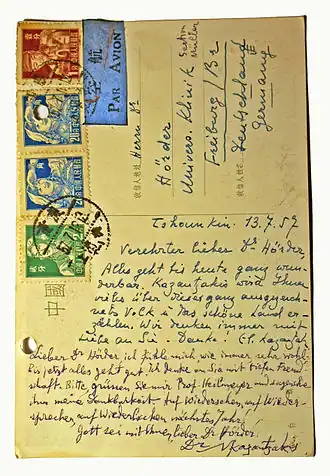 航空
PAR AVION
Herrn Dr
Hörder
Univers. Klinik Sektor Müller
Freiburg/Br
Deutschland
Germany
中國
Tshounkin. 13.7.57
Verehrter lieber Dr Hörder,
Alles geht bis heute ganz wun-
derbar. Kazantzakis wird Ihnen
vieles über dieses ganz ausgezeich-
nete Volk u das schöne Land er-
zählen. Wir denken immer mit
Liebe an Sie. Danke!
Lieber Dr Hörder, ich fühle mich wie immer sehr wohl;
bis jetzt alles geht gut. Ich denke an Sie mit tiefen Freund-
schaft. Bitte, grüssen Sie mir Prof. Heilmeyer und
ihm meine Dankbarkeit. Auf Wiedersehen, auf Wieder-
sprechen, auf Wiederlachen nächstes Jahr!
Gott sei mit Ihnen, lieber Dr Hörder!
Dr Kazantzakis